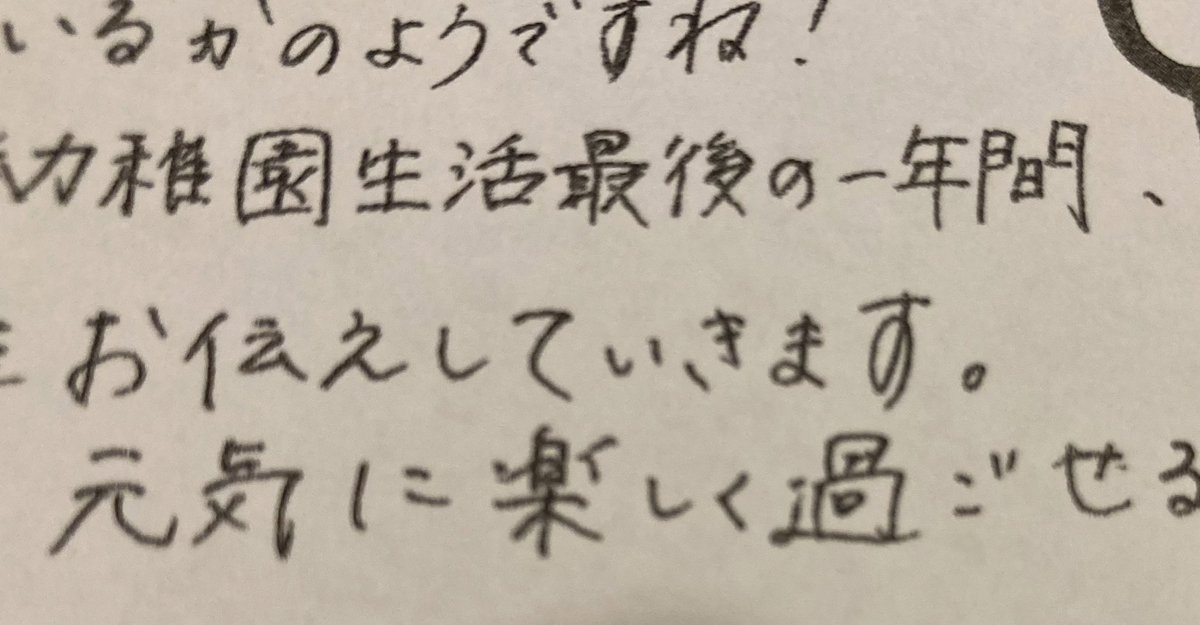 いるかのようですね!
幼稚園生活最後の一年間、
お伝えしていきます。
元気に楽しく過ごせる